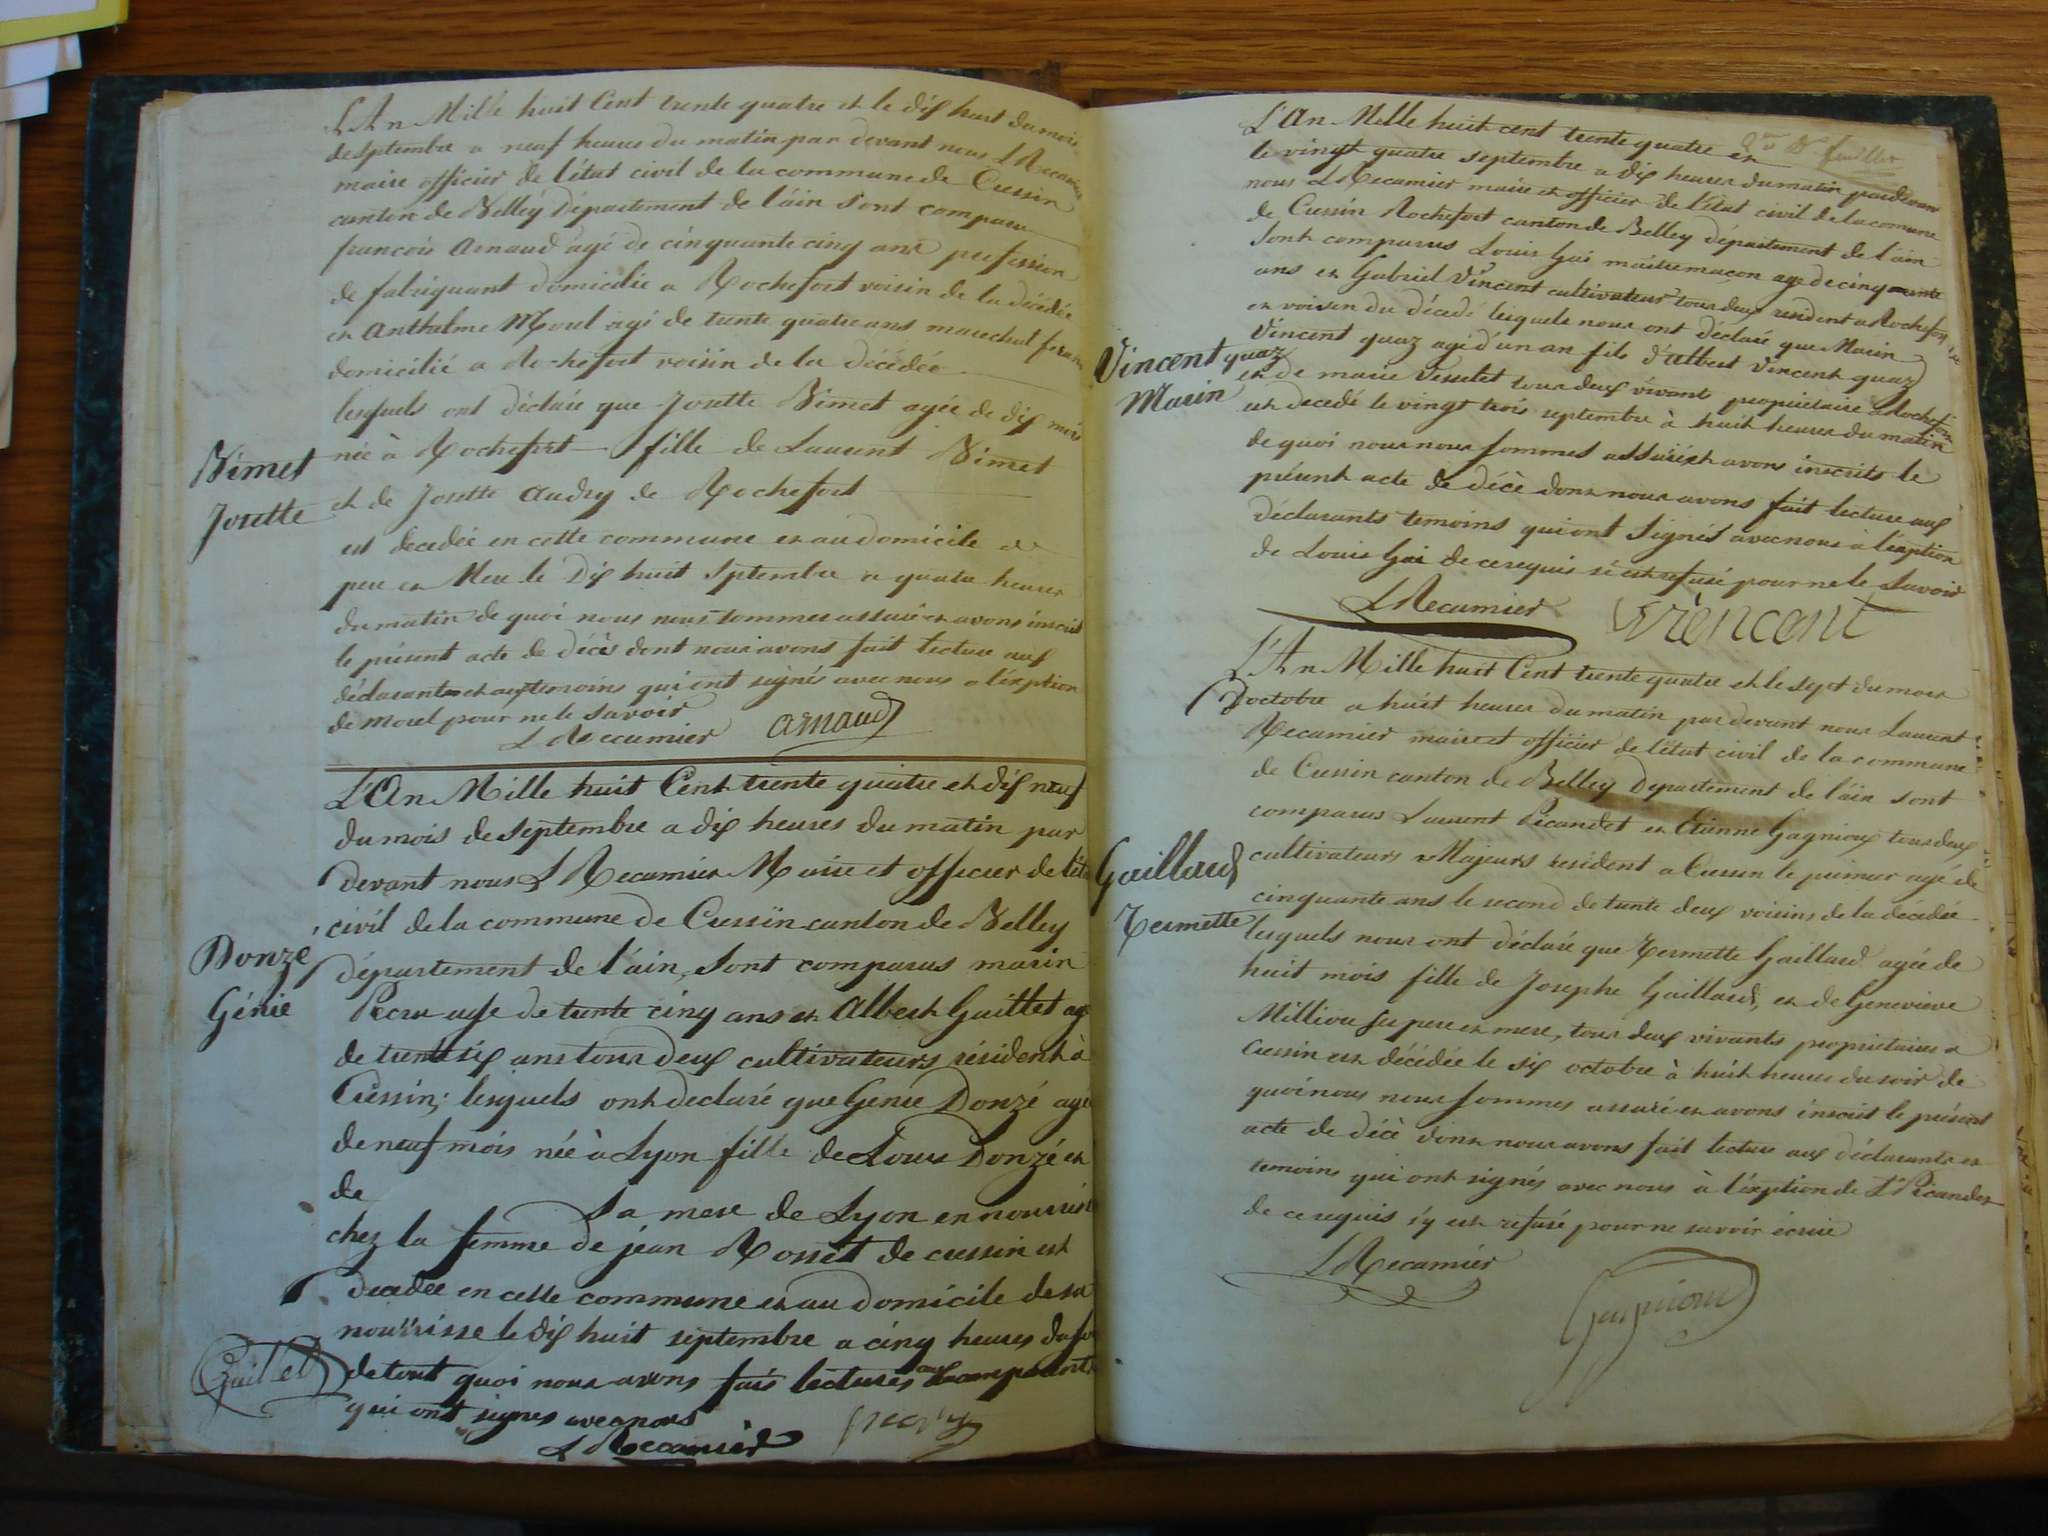 L'An Mille huit Cent trente quatre et le dix huit du mois
de septembre a neuf heures du matin par devant nous L Recamier
maire officier de l'état civil de la commune de Cressin
canton de Belley département de l'ain sont comparu
françois Arnaud agé de cinquante cinq ans profession
de fabriquant domicilié a Rochefort voisin de la décédée
et Anthelme Morel agé de trente quatre ans marechal ferrant
domicilié a Rochefort voisin de la décédée
lesquels ont déclaré que Josette Bimet agée de dix mois
Bimet
Josette
née à Rochefort fille de Laurent Bimet
et de Josette Audry de Rochefort
est decedée en cette commune et au domicile de
pere et Mere le Dix huit Septembre a quatre heures
du matin de quoi nous nous sommes assuré et avons inscrit
le présent acte de décès dont nous avons fait lecture aux
déclarants et aux temoins qui ont signés avec nous a l'exption
de Morel pour ne le savoir
L Recamier arnaud
L'An Mille huit Cent trente quatre et dix neuf
du mois de septembre a dix heures du matin par
devant nous L Recamier Maire et officier de l'état
civil de la commune de Cressin canton de Belley
Donzé
Génie
département de l'ain, sont comparus marin
age de trente cinq ans et Albert Guillet agé
de trente six ans tous deux cultivateurs résident à
Cressin; lesquels ont declaré que Génie Donzé agé
de neuf mois née à Lyon fille de Louis Donzé et
de
sa mere de Lyon en nourrice
chez la femme de jéan Rosset de cressin est
decedée en cette commune et au domicile de sa
nourrisse le dix huit septembre a cinq heures du soir
de tout quoi nous avons fais lectures aux comparants
qui ont signes avec nous
Guillet
L Recamier
L'An Mille huit cent trente quatre et
feuillet
le vingt quatre septembre a dix heures du matin pardevant
nous L Recamier maire et officier de l'état civil de la comune
de Cressin Rochefort canton de Belley département de l'ain
sont comparus Louis Gai maitre maçon age de cinquante
ans et Gabriel Vincent cultivateur tous deux resident a Rochefort
et voisin du décedé lesquels nous ont déclaré que Marin
Vincent quaz
Marin
Vincent quaz age d'un an fils d'Albert Vincent quaz
et de marie Vesselet tous deux vivants propriétaire a Rochefort
est decedé le vingt trois septembre à huit heures du matin
de quoi nous nous sommes assuré et avons inscrits le
présent acte de décè dont nous avons fait lecture aux
déclarants temoins qui ont signés avec nous a l'exption
de Louis Gai de ce requis s'é est refusé pour ne le savoir
L Recamier Vrencent
L'An Mille huit Cent trente quatre et le sept du mois
d'octobre a huit heures du matin par devant nous Laurent
Recamier maire et officier de l'état civil de la commune
de Cressin canton de Belley département de l'ain sont
comparus Laurent Picandet et Etienne Gagnioux tous deux
Gaillard
Termette
cultivateurs Majeurs resident a Cressin le premier agé de
cinquante ans le second de trente deux voisins de la décédée
lesquels nous ont déclaré que Termette Gaillard agée de
huit mois fille de Josephe Gaillard, et de Geneviève
Milliou ses pere et mere, tous deux vivants propriétaires a
Cressin est décédée le six octobre à huit heures du soir de
quoi nous nous sommes assuré et avons inscrit le présent
acte de décè dont nous avons fait lecture aux déclarants et
temoins qui ont signés avec nous à l'exption de Lt Picandet
de ce requis s'y est refusé pour ne savoir écrire
L Recamier
Gagnioux